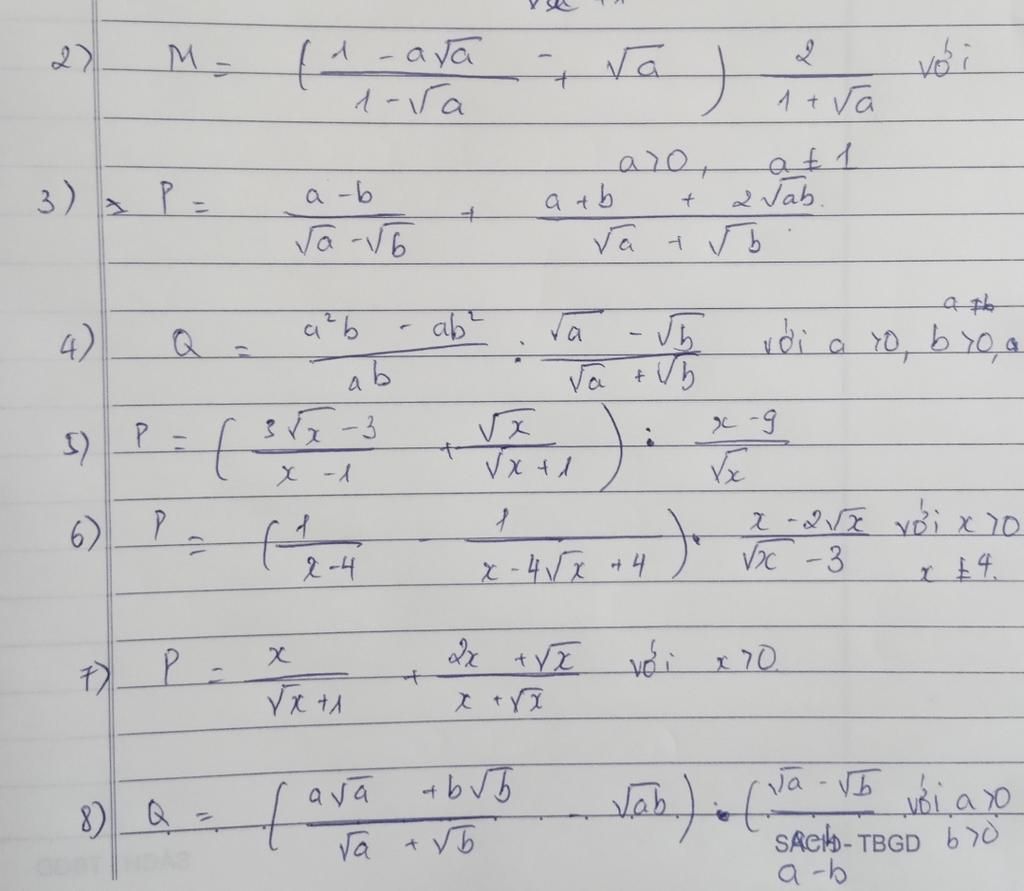 2) M = ( (1 - a√a)/(1 - √a) + √a ) 2/(1 + √a) với
a>0, a ≠ 1
3) P = (a - b)/(√a - √b) + (a + b + 2√ab)/(√a + √b)
a ≠ b
4) Q = (a²b - ab²)/(ab) : (√a - √b)/(√a + √b) với a >0, b >0, a
5) P = ( (3√x - 3)/(x - 1) + √x/(√x + 1) ) : (x - 9)/√x
6) P = ( 1/(x - 4) - 1/(x - 4√x + 4) ) . (x - 2√x)/(√x - 3) với x >0
x ≠ 4.
7) P = x/(√x + 1) + (2x + √x)/(x + √x) với x >0
8) Q = ( (a√a + b√b)/(√a + √b) - √ab ) : ( (√a - √b)/(a - b) với a>0
b>0
SÁCH - TBGD